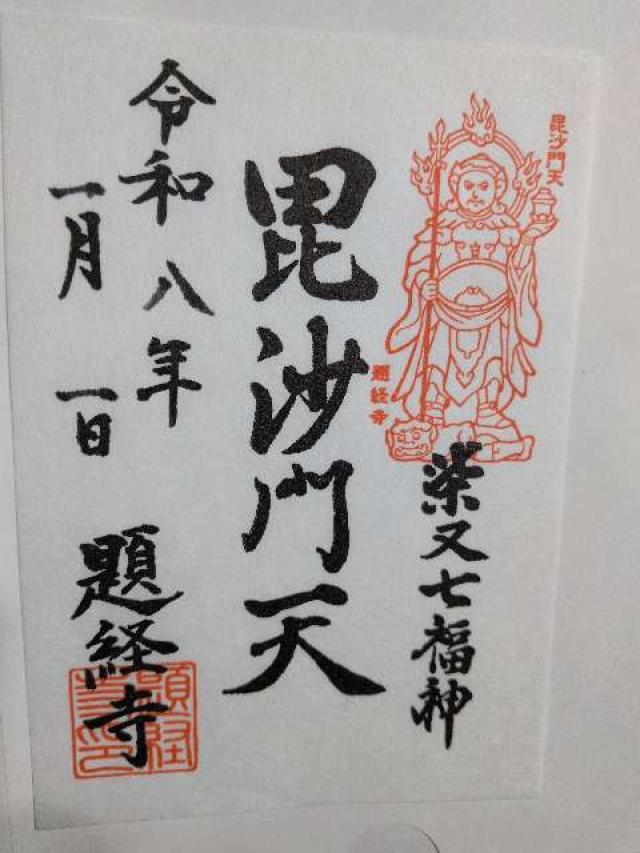 毘沙門天
題経寺
柴又七福神
毘沙門天
令和八年
一月一日
題経寺
題経寺